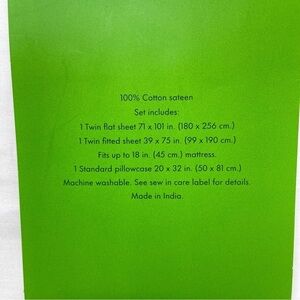 100% Cotton sateen
Set includes:
1 Twin flat sheet 71 x 101 in. (180 x 256 cm.)
1 Twin fitted sheet 39 x 75 in. (99 x 190 cm.)
Fits up to 18 in. (45 cm.) mattress.
1 Standard pillowcase 20 x 32 in. (50 x 81 cm.)
Machine washable. See sew in care label for details.
Made in India.